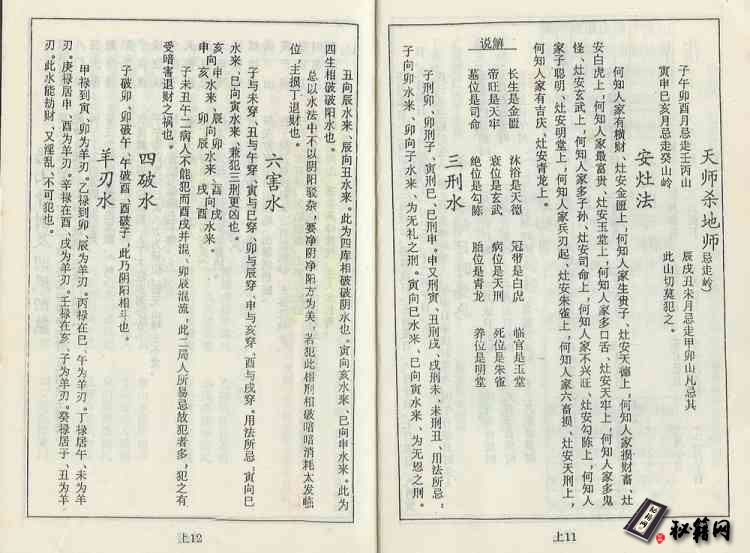 天师杀地师忌走岭)
子午卯酉月忌走壬丙山 辰戌丑未月忌走甲卯山凡忌其
寅申巳亥月忌走癸山岭 此山切莫犯之。
安灶法
何知人家有横财、灶安金匮上，何知人家生贵子、灶安天德上，何知人家损财畜、灶
安白虎上，何知人家最富贵、灶安玉堂上，何知人家多口舌、灶安天牢上，何知人家多鬼
怪、灶安玄武上，何知人家多子孙、灶安司命上，何知人家不兴旺、灶安勾陈上，何知人
家子聪明、灶安明堂上，何知人家兵刃起、灶安朱雀上，何知人家六畜损、灶安天刑上，
何知人家有吉庆、灶安青龙上。
说解
长生是金匮 沐浴是天德 冠带是白虎 临官是玉堂
帝旺是天牢 衰位是玄武 病位是天刑 死位是朱雀
墓位是司命 绝位是勾陈 胎位是青龙 养位是明堂
三刑水
子刑卯、卯刑子、寅刑巳、巳刑申。申又刑寅、丑刑戌、戌刑未、未刑丑、用法所忌：
子向卯水来、卯向子水来、为无礼之刑。寅向巳水来、巳向寅水来、为无恩之刑。
上11
丑向辰水来、辰向丑水来。此为四库相破破阴水也。寅向亥水来、巳向申水来。此为
四生相破破阳水也。
总以水法中不以阴阳驳杂，要净阴净阳方为美、若犯此相刑相破暗暗消耗太发临
位，主损丁退财也。
六害水
子与未穿、丑与午穿、寅与巳穿、卯与辰穿、申与亥穿、酉与戌穿。用法所忌：寅向巳
水来、巳向寅水来、兼犯三刑更凶也。
申向亥水来、辰向卯水来、酉向戌水来。
亥 申 卯 辰 戌 酉
子未丑午二病人不能犯而酉戌并混、卯辰混流，此二局人所易忌故犯者多，犯之有
受暗害退财之祸也。
四破水
子破卯、卯破午、午破酉、酉破子，此乃阴阳相斗也。
羊刃水
甲禄到寅、卯为羊刃。乙禄到卯、辰为羊刃。丙禄在巳、午为羊刃。丁禄居午、未为羊
刃。庚禄居申、酉为羊刃。辛禄在酉、戌为羊刃。壬禄在亥、子为羊刃。癸禄居子、丑为羊
刃。此水能劫财、又淫乱、不可犯也。
上12
秘籍网